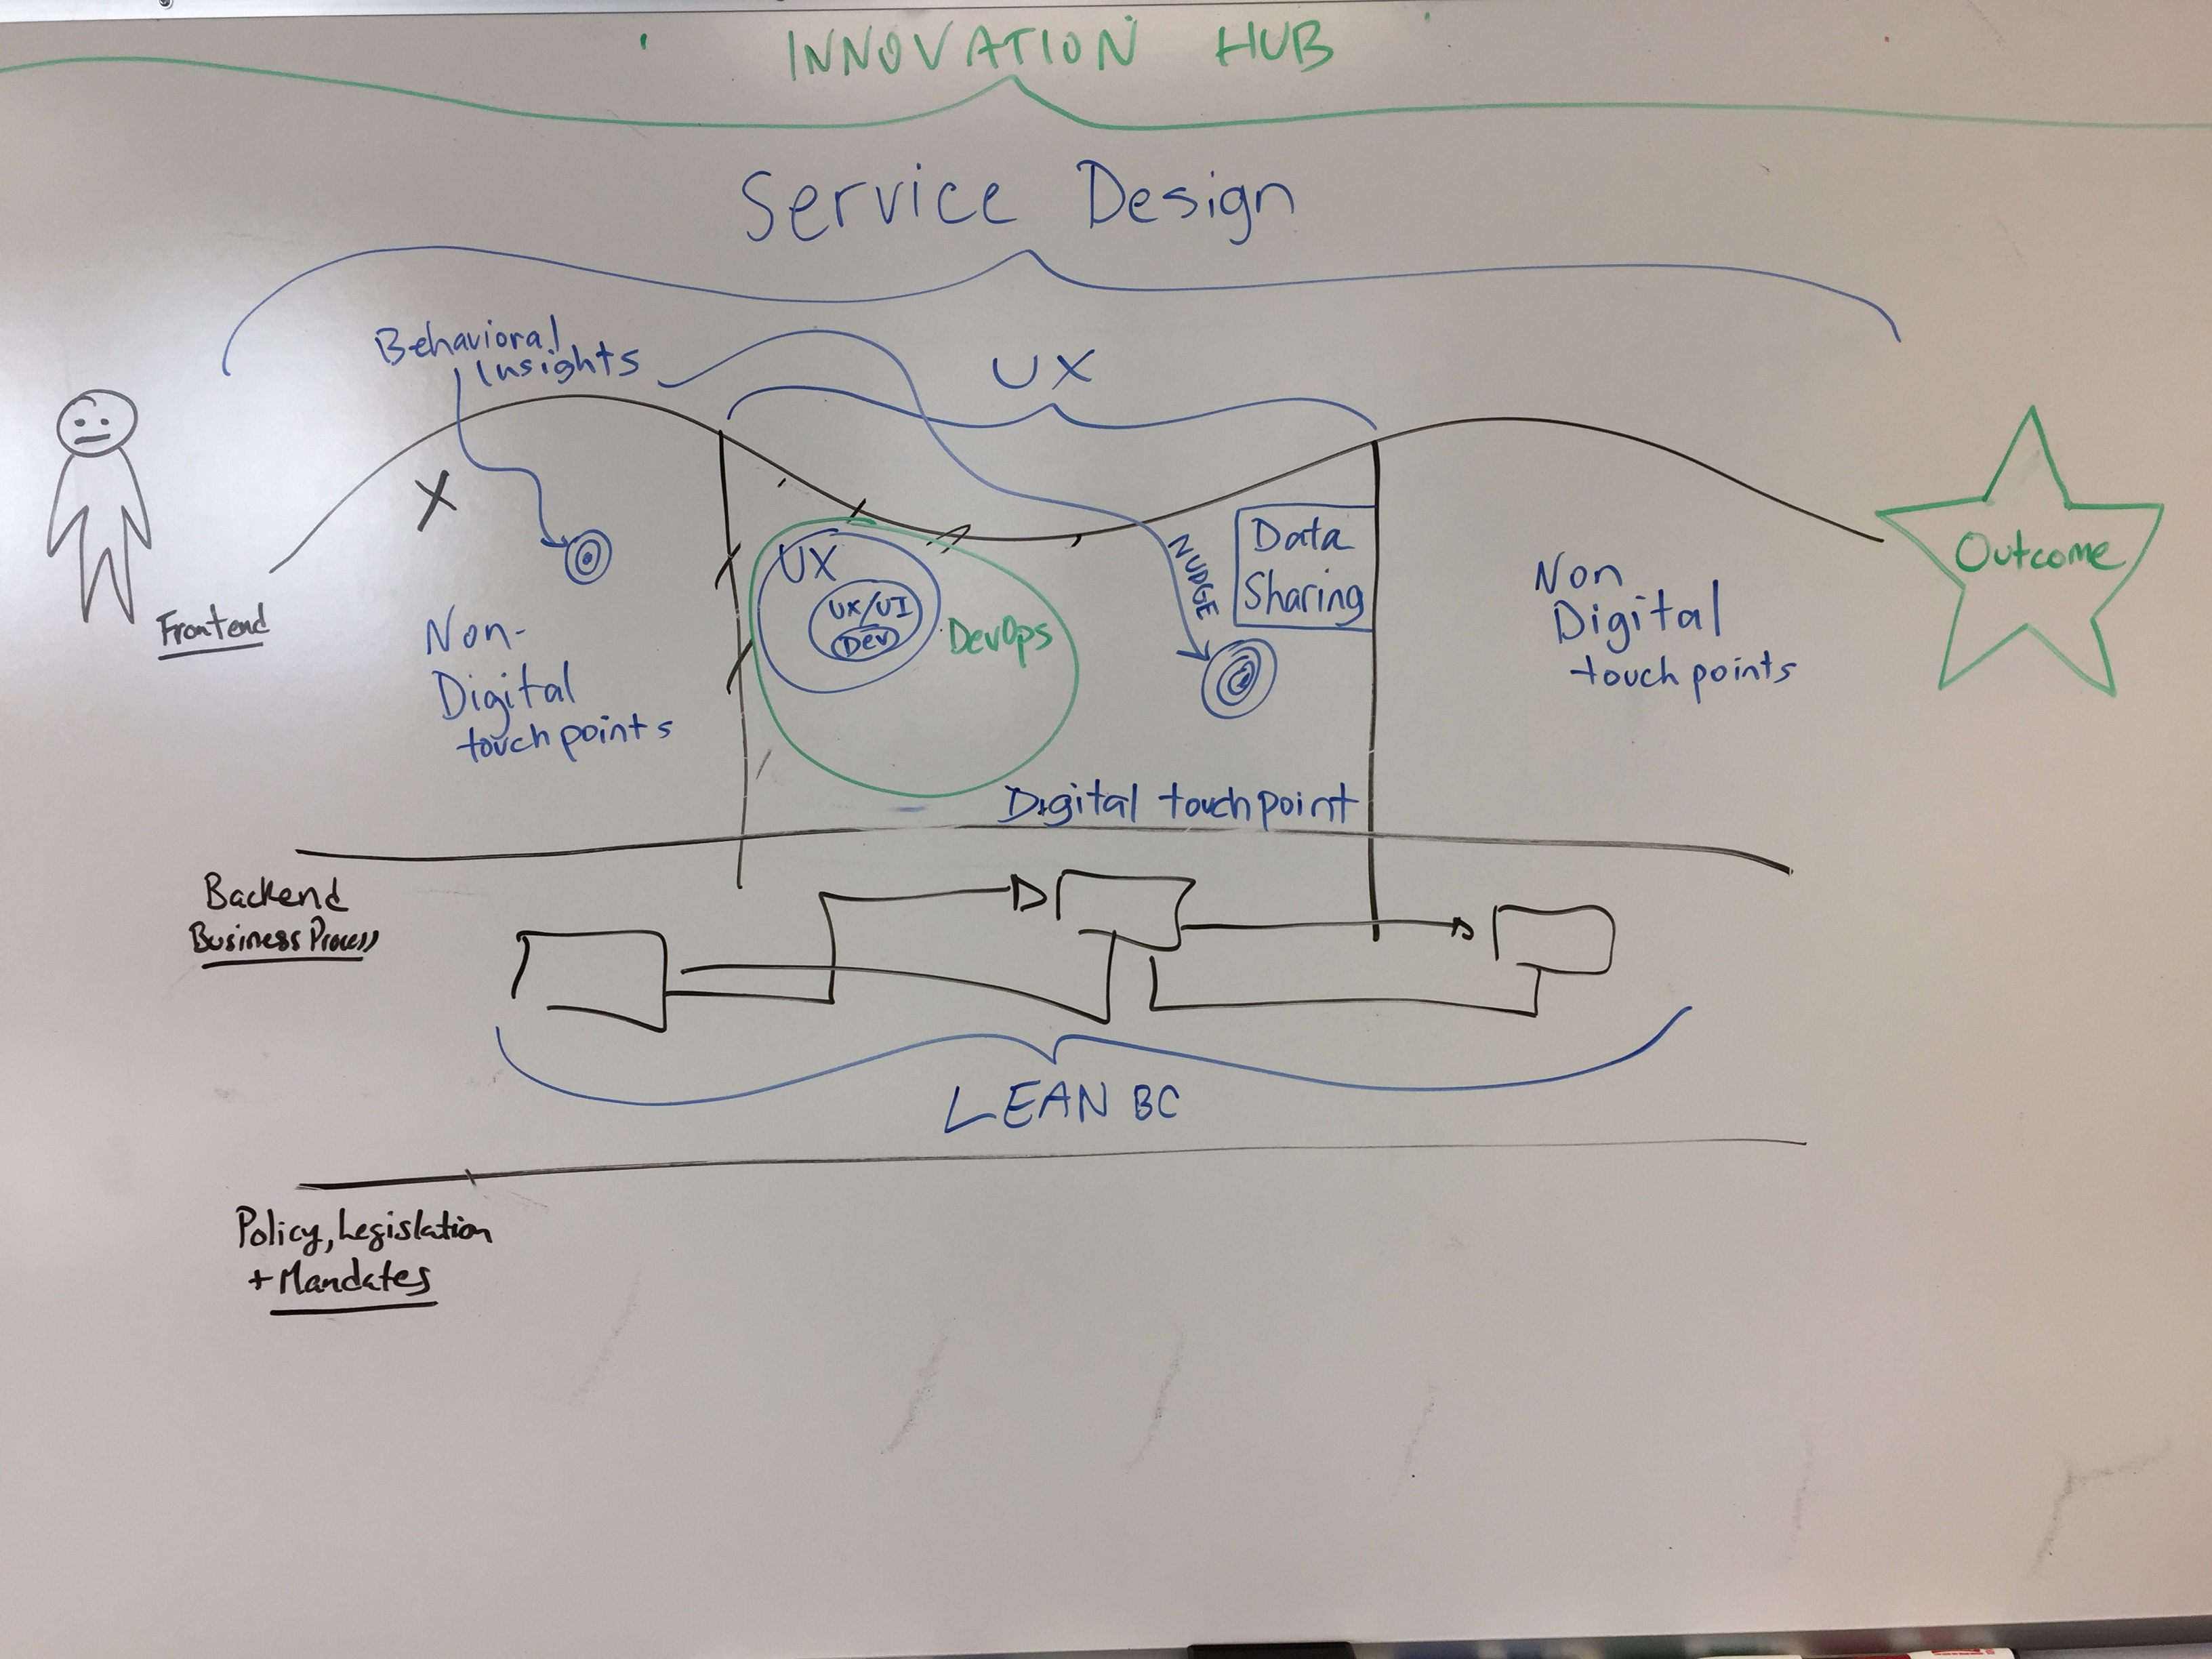 INNOVATION HUB
Service Design
Behavioral
Insights
UX
Frontend
Non-
Digital
touch points
UX
UX/UI
Dev
DevOps
NUDGE
Data
Sharing
Digital touch point
Non
Digital
touch points
Outcome
Backend
Business Process
LEAN BC
Policy, Legislation
+ Mandates